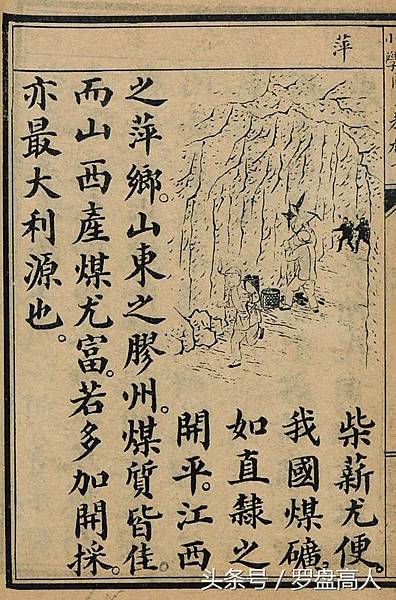 萍
柴薪尤便。
我國煤礦。
如直隸之
開平。江西
之萍鄉。山東之膠州。煤質皆佳。
而山西產煤尤富。若多加開採。
亦最大利源也。
头条号 / 罗盘高人